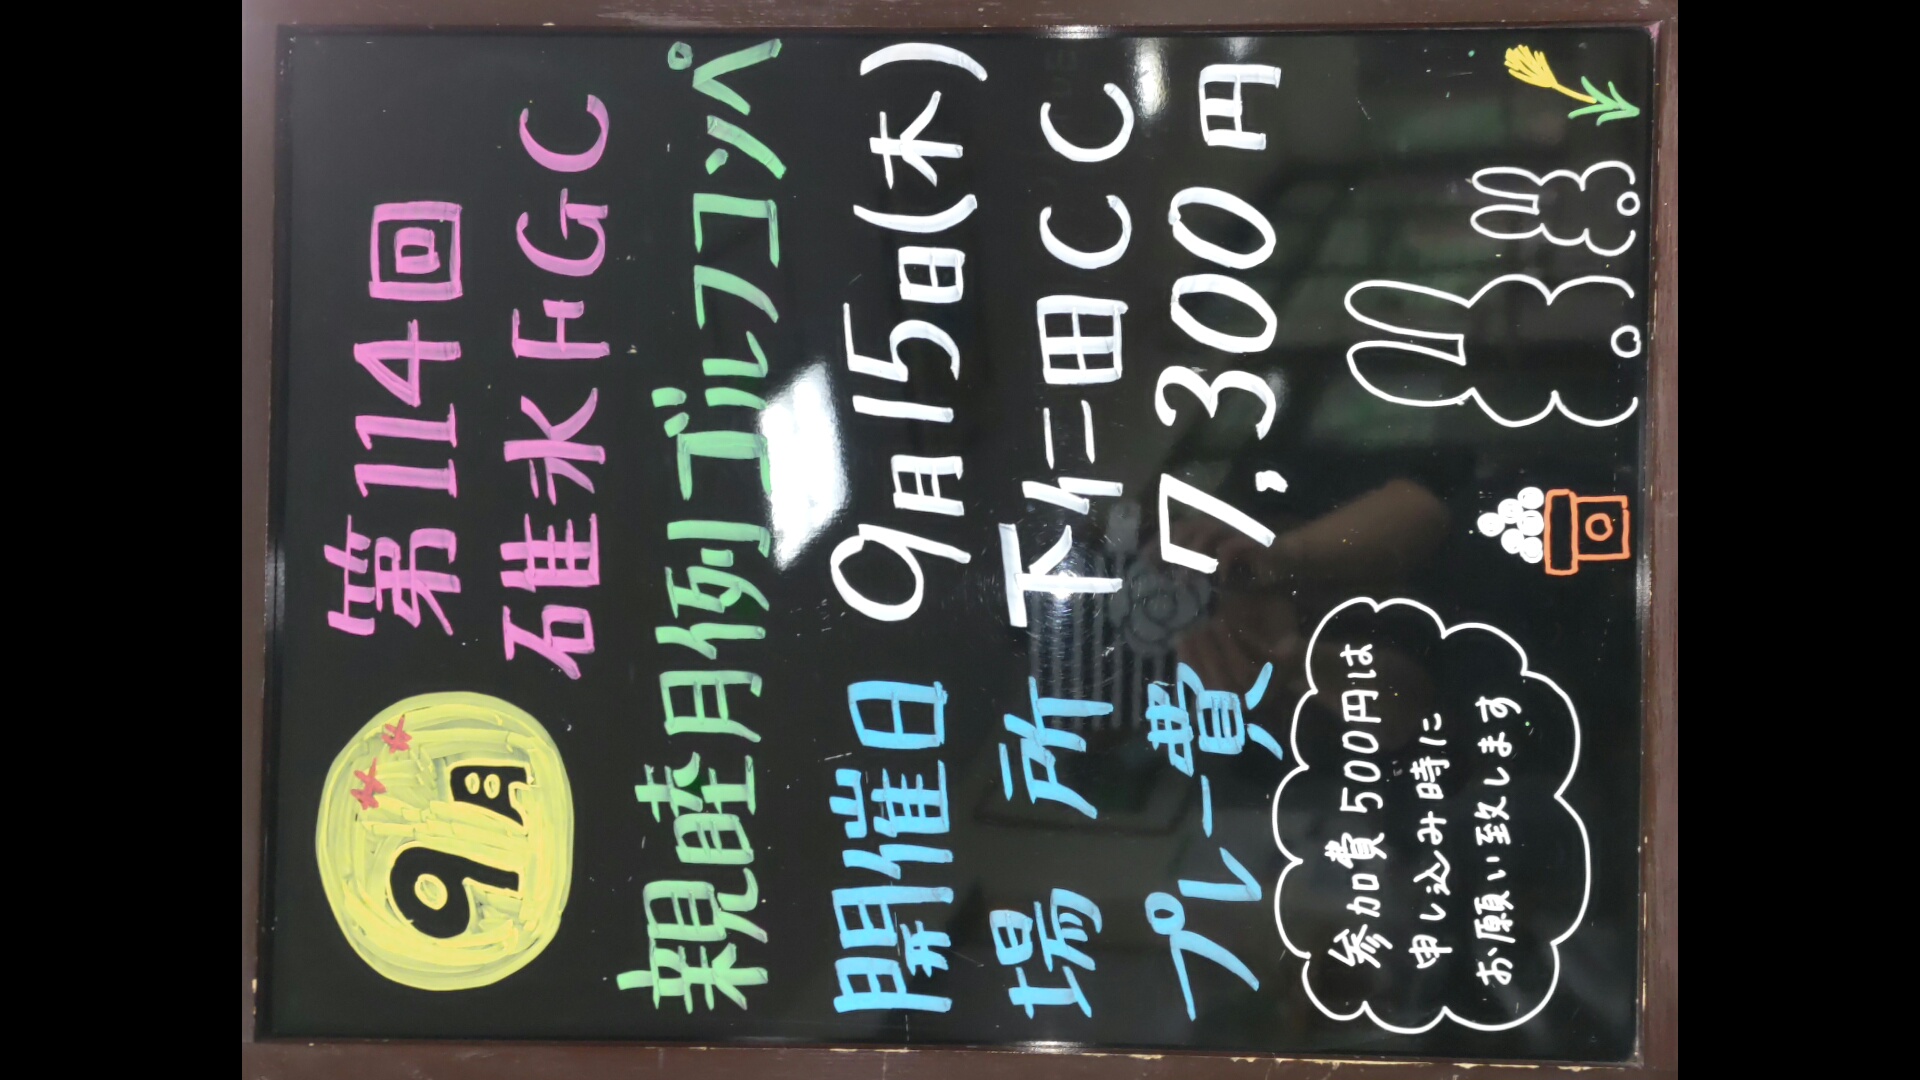 9月
第114回
碓氷FGC
親睦月例ゴルフコンペ
開催日 9月15日(木)
場所 下仁田CC
プレー費 7,300円
参加費500円は
申し込み時に
お願い致します